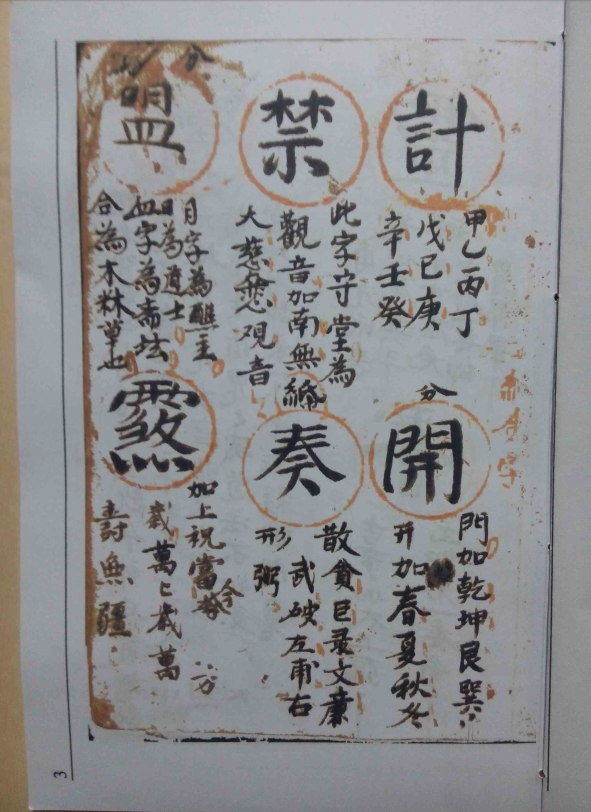 計
甲乙丙丁
戊己庚
辛壬癸
禁
此字守堂為
觀音加南無
大慈悲观音
分
盟
月字為醮主
日為道士
血字為斋坛
合為木林草也
分
開
門加乾坤艮巽
开加春夏秋冬
奏
散貪巨录文亷
武破左甫右
形弼
煞
加上祝當今
歲萬乚歲萬
壽無疆
3